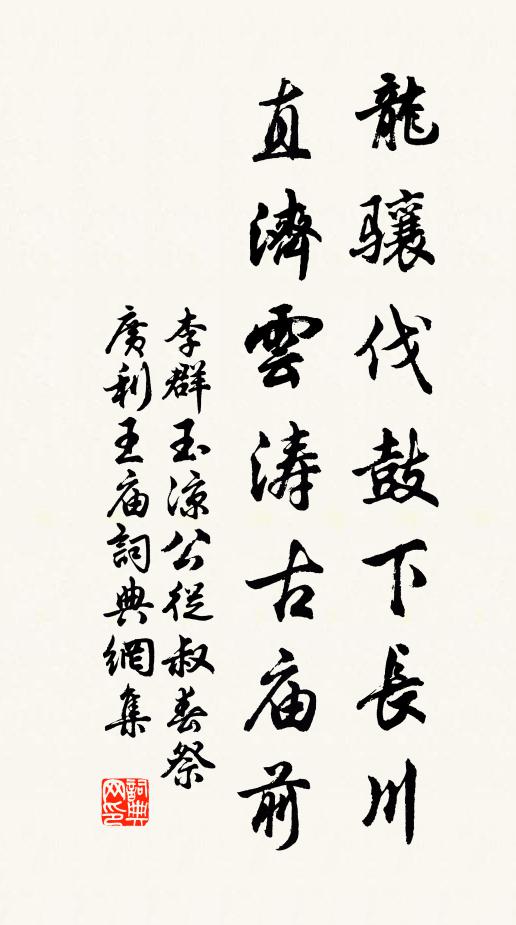 龍骧伐鼓下長川
直濟雲涛古庙前
李群玉凉公從叔春祭
廣利王庙詞典網集
詞典网印